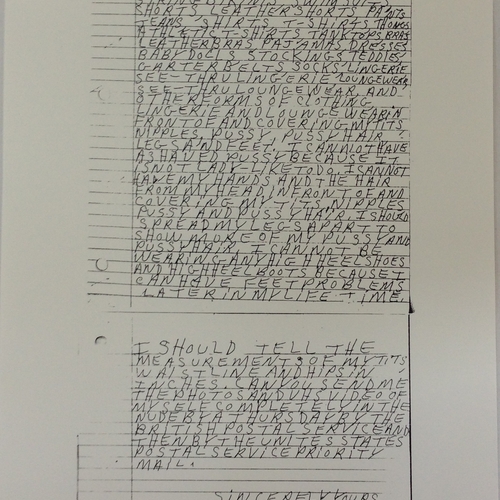 SHORTS LEATHER SHORTS PANTS
JEANS SHIRTS T-SHIRTS THONGS
ATHLETIC T-SHIRTS TANKTOPS BRAS
LEATHER BRAS PAJAMAS DRESSES
BABY DOLL STOCKINGS TEDDIES
GARTER BELTS SOCKS LINGERIE
SEE-THRU LINGERIE LOUNGEWEAR
SEE-THRU LOUNGEWEAR AND
OTHER FORMS OF CLOTHING
LINGERIE AND LOUNGEWEAR IN
FRONT OF AND COVERING MY TITS
NIPPLES, PUSSY, PUSSY HAIR
LEGS AND FEET. I CANNOT HAVE
A SHAVED PUSSY BECAUSE IT
IS NOT LADY LIKE TO DO. I CANNOT
HAVE MY HANDS AND THE HAIR
FROM MY HEAD IN FRONT OF AND
COVERING MY TITS, NIPPLES
PUSSY AND PUSSY HAIR. I SHOULD
SPREAD MY LEGS APART TO
SHOW MORE OF MY PUSSY AND
PUSSY HAIR. I CANNOT BE
WEARING ANY HIGH HEEL SHOES
AND HIGH HEEL BOOTS BECAUSE I
CAN HAVE FEET PROBLEMS
LATER IN MY LIFE-TIME.
I SHOULD TELL THE
MEASUREMENTS OF MY TITS
WAISTLINE AND HIPS IN
INCHES. CAN YOU SEND ME
THE PHOTOS AND VHS VIDEO OF
MYSELF COMPLETELY IN THE
NUDE BY THURSDAY BY THE
BRITISH POSTAL SERVICE AND
THEN BY THE UNITES STATES
POSTAL SERVICE PRIORITY
MAIL.
SINCERELY YOURS